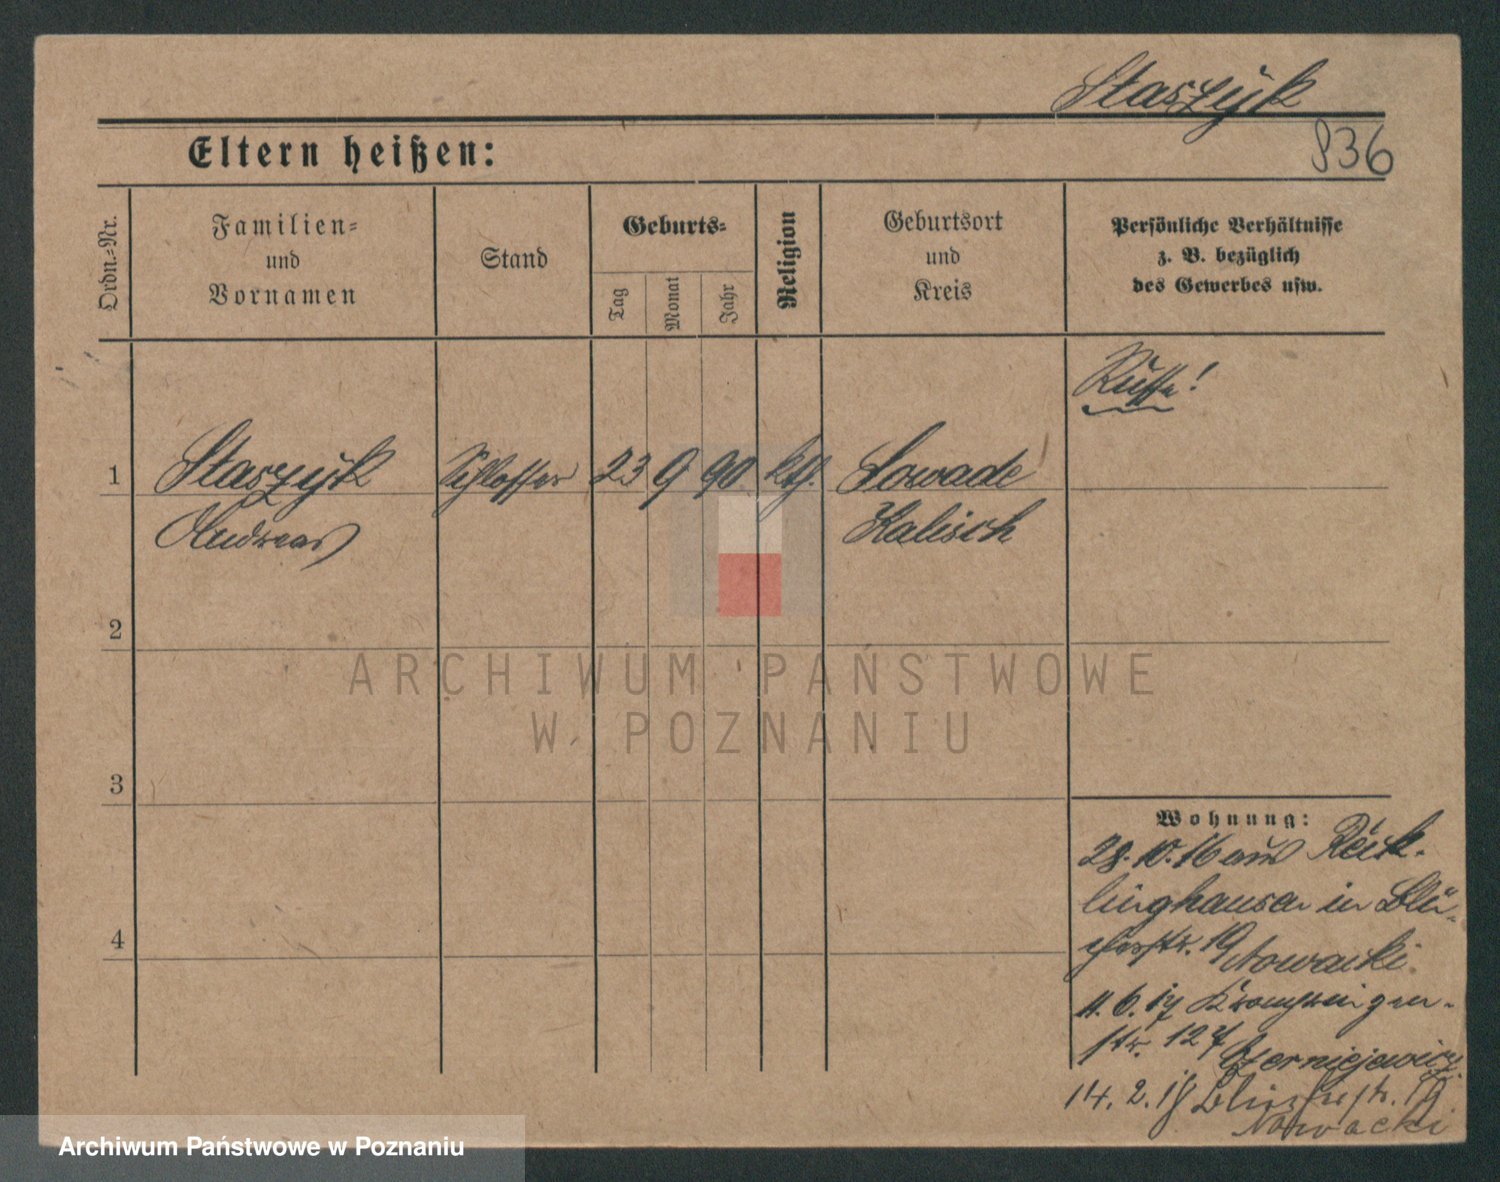 Staszÿk
836
Eltern heißen:
Ordn.-Nr.
Familien-
und
Vornamen
Stand
Geburts-
Tag
Monat
Jahr
Religion
Geburtsort
und
Kreis
Persönliche Verhältnisse
z. B. bezüglich
des Gewerbes usw.
Russe!
1 Staszÿk Schlosser 23 9 90 kth. Sowade
Andreas Kalisch
2
3
4
Wohnung:
28. 10. 16 aus Reck-
linghausen in Blü-
cherstr. 19 Nowacki
11. 6. 17 Kronprinzen-
str. 127 Czerniejewicz
14. 2. 18 Blücherstr. 19
Nowacki
ARCHIWUM PAŃSTWOWE
W POZNANIU
Archiwum Państwowe w Poznaniu